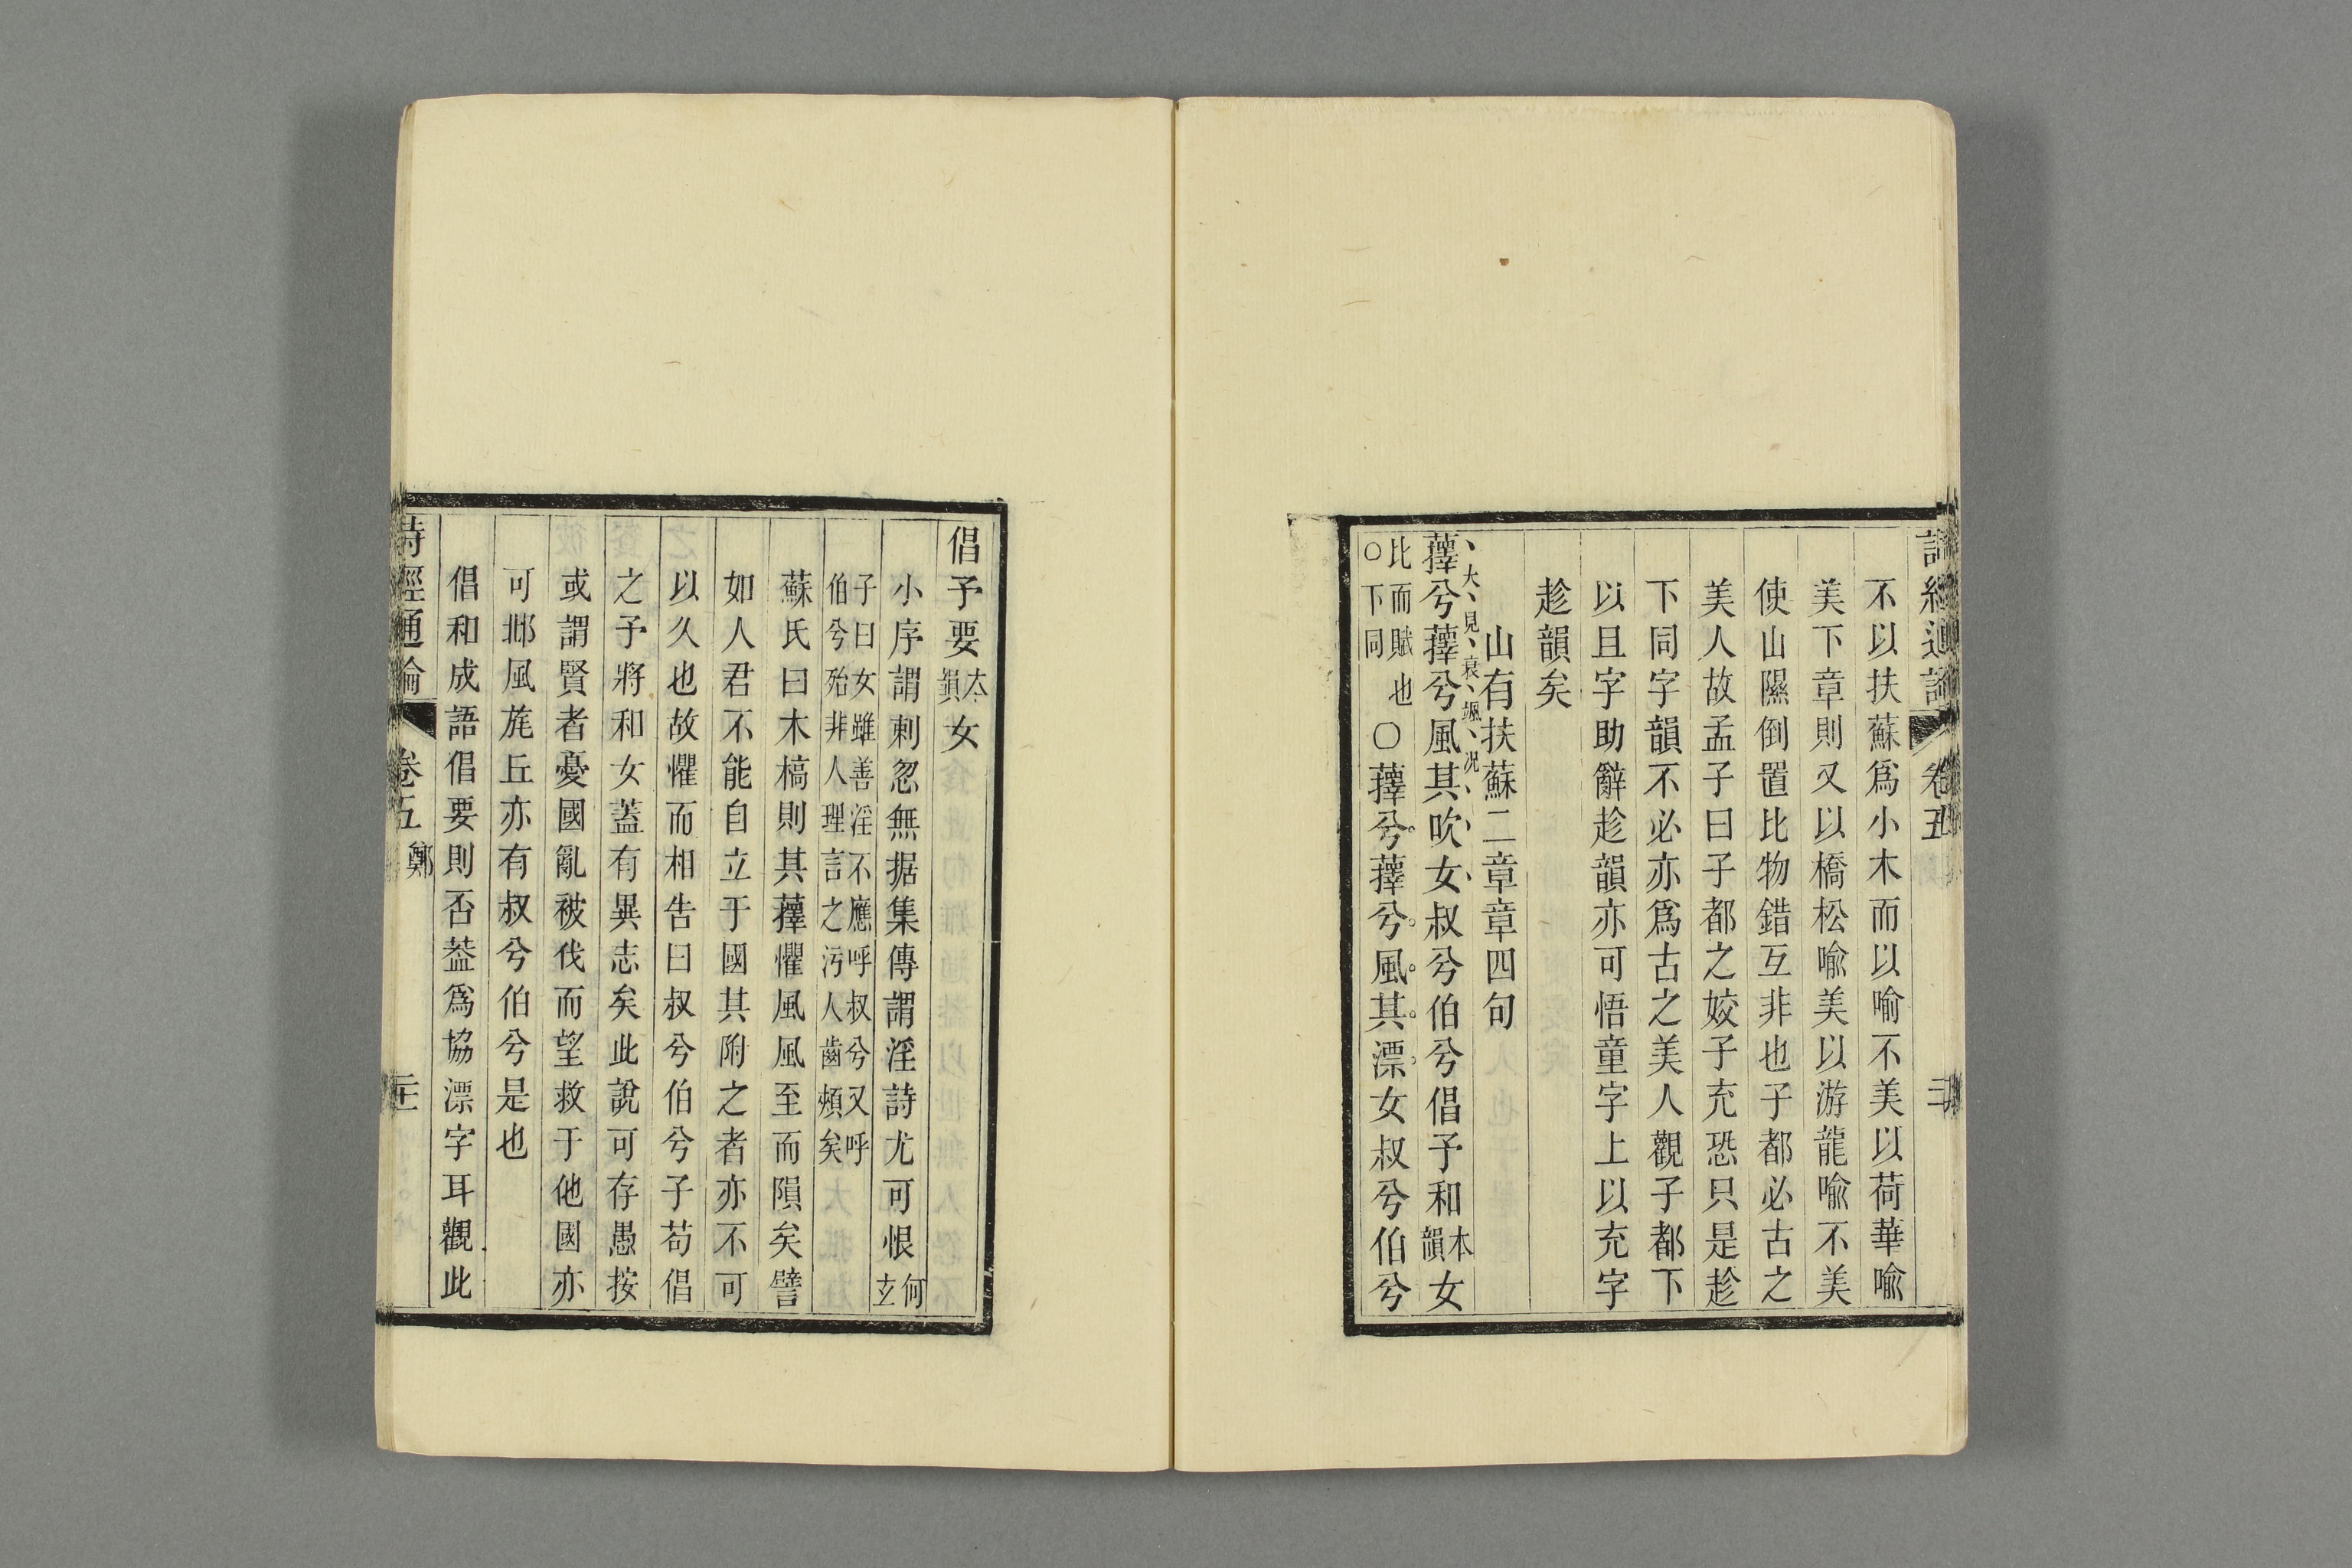 詩經通論 卷五
不以扶蘇爲小木而以喻不美以荷華喻
美下章則又以橋松喻美以游龍喻不美
使山隰倒置比物錯互非也子都必古之
美人故孟子曰子都之姣子充恐只是趁
下同字韻不必亦爲古之美人觀子都下
以且字助辭趁韻亦可悟童字上以充字
趁韻矣
山有扶蘇二章章四句
大見衰颯况
蘀兮蘀兮風其吹女叔兮伯兮倡予和本韻女
比而賦也○下同○蘀兮蘀兮風其漂女叔兮伯兮
倡予要本韻女
小序謂刺忽無据集傳謂淫詩尤可恨何玄
子曰女雖善淫不應呼叔兮又呼
伯兮殆非人理言之污人齒頰矣
蘇氏曰木槁則其蘀懼風風至而隕矣譬
如人君不能自立于國其附之者亦不可
以久也故懼而相告曰叔兮伯兮子苟倡
之予將和女蓋有異志矣此說可存愚按
或謂賢者憂國亂被伐而望救于他國亦
可邶風旄丘亦有叔兮伯兮是也
倡和成語倡要則否葢爲協漂字耳觀此
詩經通論 卷五 鄭